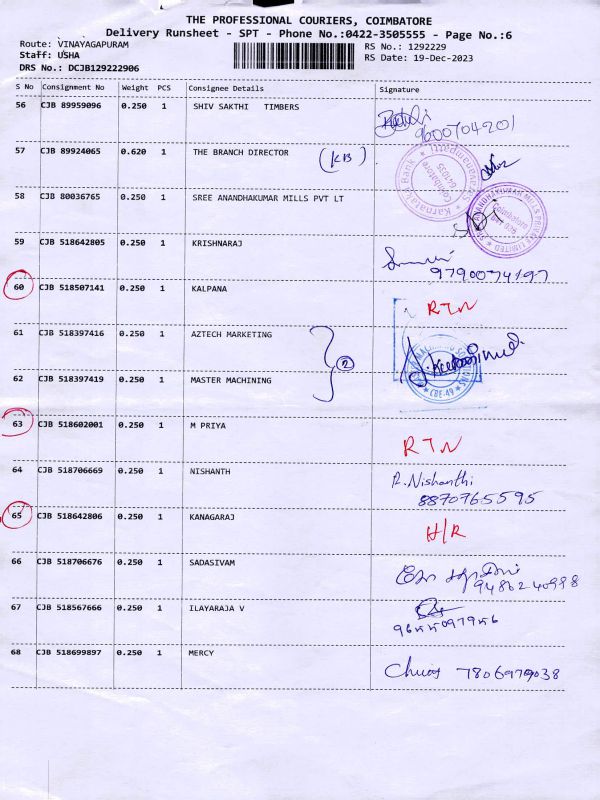 THE PROFESSIONAL COURIERS, COIMBATORE
Delivery Runsheet - SPT - Phone No.:0422-3505555 - Page No.:6
Route: VINAYAGAPURAM
RS No.: 1292229
Staff: USHA
RS Date: 19-Dec-2023
DRS No.: DCJB129222906
S No Consignment No Weight PCS Consignee Details Signature
56 CJB 89959096 0.250 1 SHIV SAKTHI TIMBERS
9600704201
57 CJB 89924065 0.620 1 THE BRANCH DIRECTOR (KB)
Karnataka Bank Coimbatore 641035
58 CJB 80036765 0.250 1 SREE ANANDHAKUMAR MILLS PVT LT
ANANDHAKUMAR MILLS PRIVATE LIMITED Coimbatore
59 CJB 518642805 0.250 1 KRISHNARAJ
9790074197
60 CJB 518507141 0.250 1 KALPANA RTN
61 CJB 518397416 0.250 1 AZTECH MARKETING
2
62 CJB 518397419 0.250 1 MASTER MACHINING
CBE-49
63 CJB 518602001 0.250 1 M PRIYA
RTN
64 CJB 518706669 0.250 1 NISHANTH R. Nishanthi
8870765595
65 CJB 518642806 0.250 1 KANAGARAJ H/R
66 CJB 518706676 0.250 1 SADASIVAM
67 CJB 518567666 0.250 1 ILAYARAJA V
9655097956
68 CJB 518699897 0.250 1 MERCY
7806979038